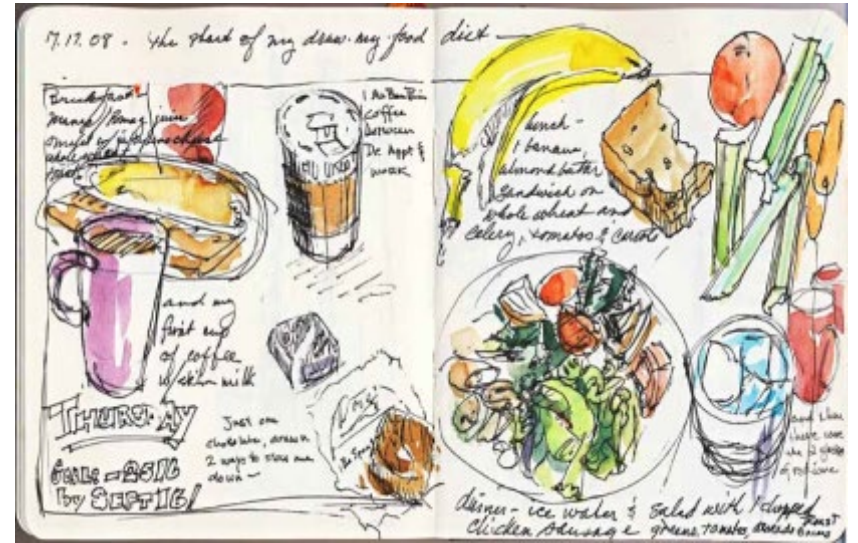 7.17.08 - the start of my draw-my-food diet -
Breakfast -
mango / juice
omelet w/ cheese
whole
1 Au Bon Pain
coffee
between
Dr. Appt &
work
and my
first cup
of coffee
w/ skim milk
THURSDAY
Goal: -25 lb
by SEPT 16!
Just one
chocolate, drawn
2 ways to slow me
down -
lunch -
1 banana,
almond butter
sandwich on
whole wheat and
celery, tomatoes & carrots
and then
there were
the 2 glasses
of red wine
dinner - ice water & salad with 1 chopped
chicken sausage greens, tomatoes, avocado